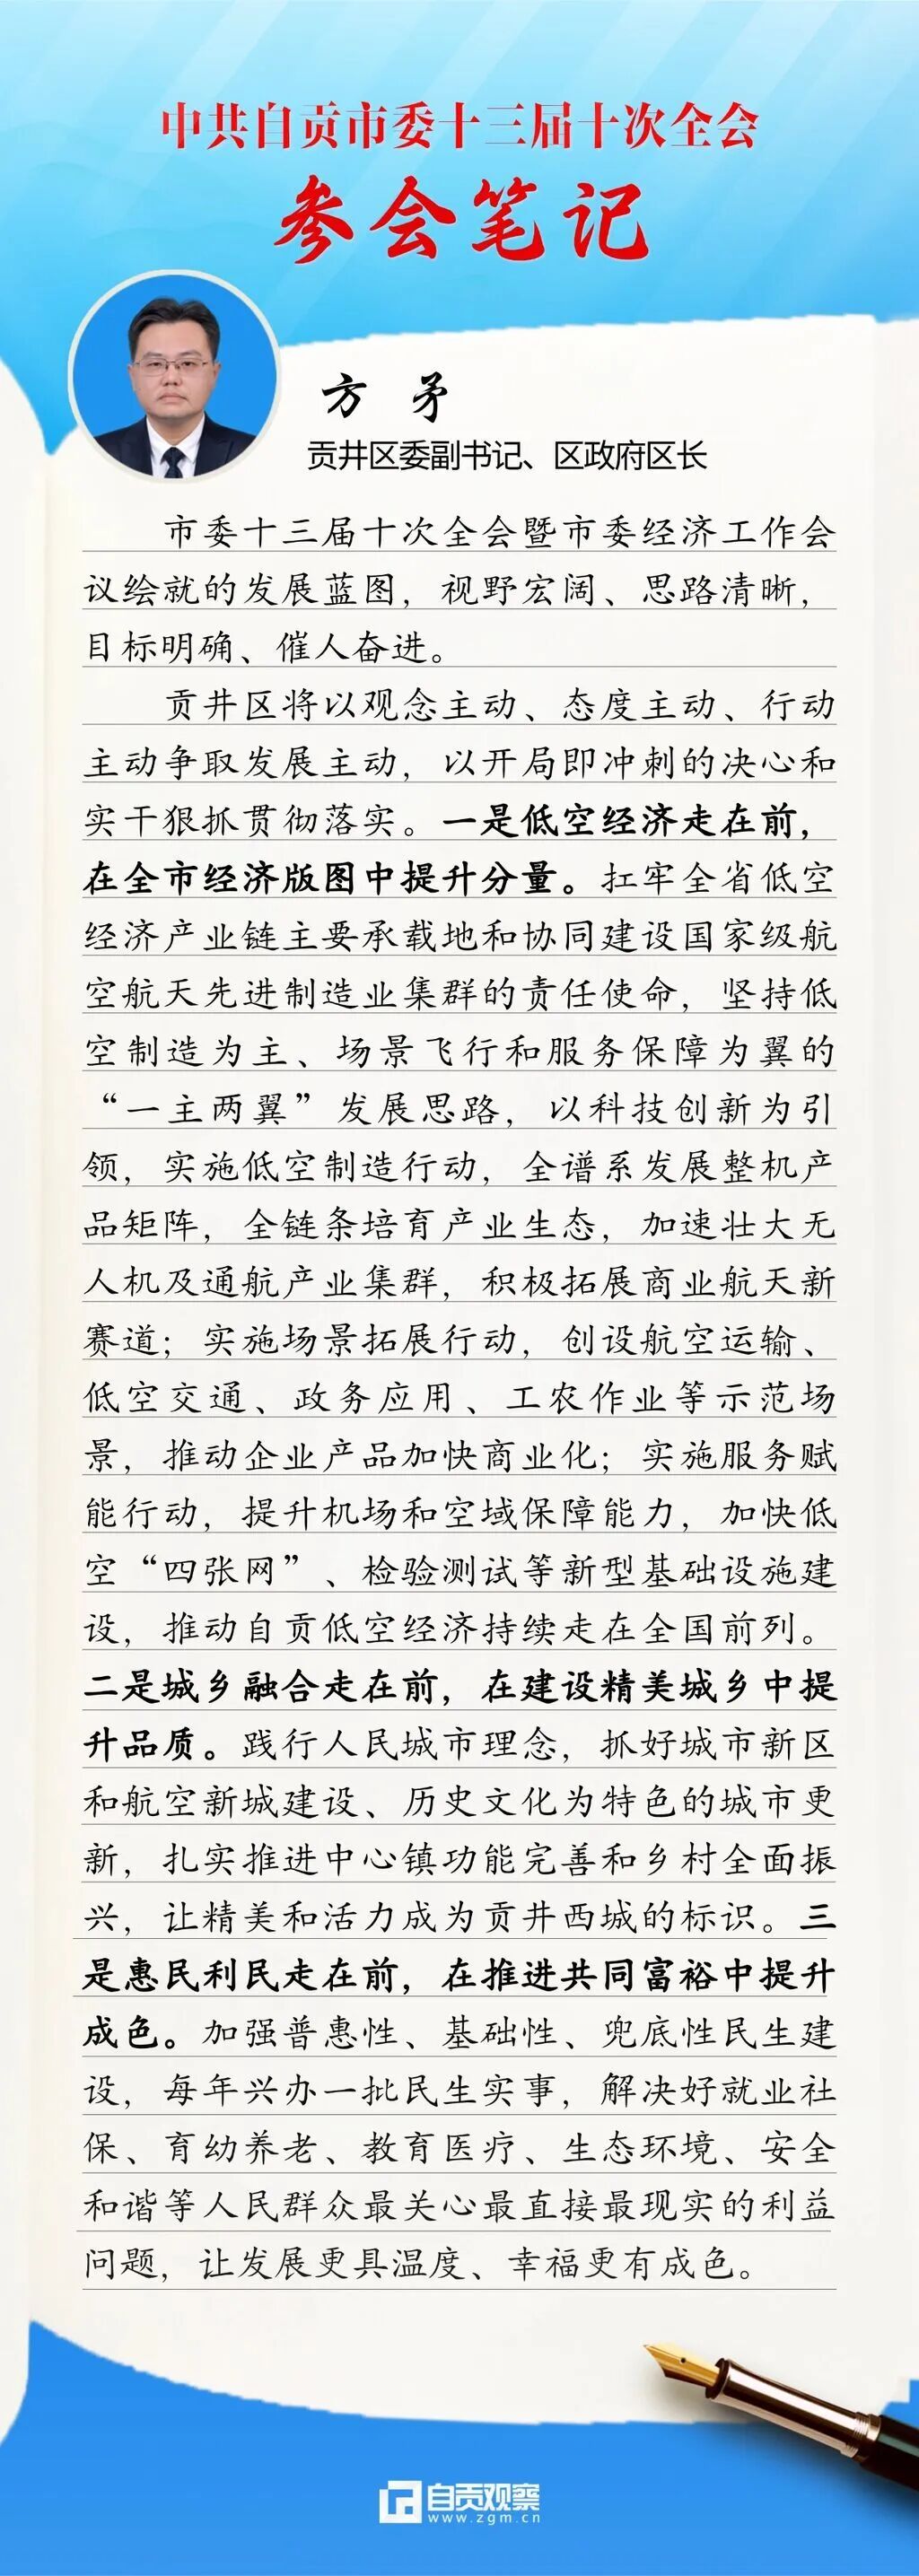 中共自贡市委十三届十次全会
参会笔记
方 矛
贡井区委副书记、区政府区长
市委十三届十次全会暨市委经济工作会
议绘就的发展蓝图，视野宏阔、思路清晰，
目标明确、催人奋进。
贡井区将以观念主动、态度主动、行动
主动争取发展主动，以开局即冲刺的决心和
实干狠抓贯彻落实。一是低空经济走在前，
在全市经济版图中提升分量。扛牢全省低空
经济产业链主要承载地和协同建设国家级航
空航天先进制造业集群的责任使命，坚持低
空制造为主、场景飞行和服务保障为翼的
“一主两翼”发展思路，以科技创新为引
领，实施低空制造行动，全谱系发展整机产
品矩阵，全链条培育产业生态，加速壮大无
人机及通航产业集群，积极拓展商业航天新
赛道；实施场景拓展行动，创设航空运输、
低空交通、政务应用、工农作业等示范场
景，推动企业产品加快商业化；实施服务赋
能行动，提升机场和空域保障能力，加快低
空“四张网”、检验测试等新型基础设施建
设，推动自贡低空经济持续走在全国前列。
二是城乡融合走在前，在建设精美城乡中提
升品质。践行人民城市理念，抓好城市新区
和航空新城建设、历史文化为特色的城市更
新，扎实推进中心镇功能完善和乡村全面振
兴，让精美和活力成为贡井西城的标识。三
是惠民利民走在前，在推进共同富裕中提升
成色。加强普惠性、基础性、兜底性民生建
设，每年兴办一批民生实事，解决好就业社
保、育幼养老、教育医疗、生态环境、安全
和谐等人民群众最关心最直接最现实的利益
问题，让发展更具温度、幸福更有成色。
自贡观察
www.zgm.cn